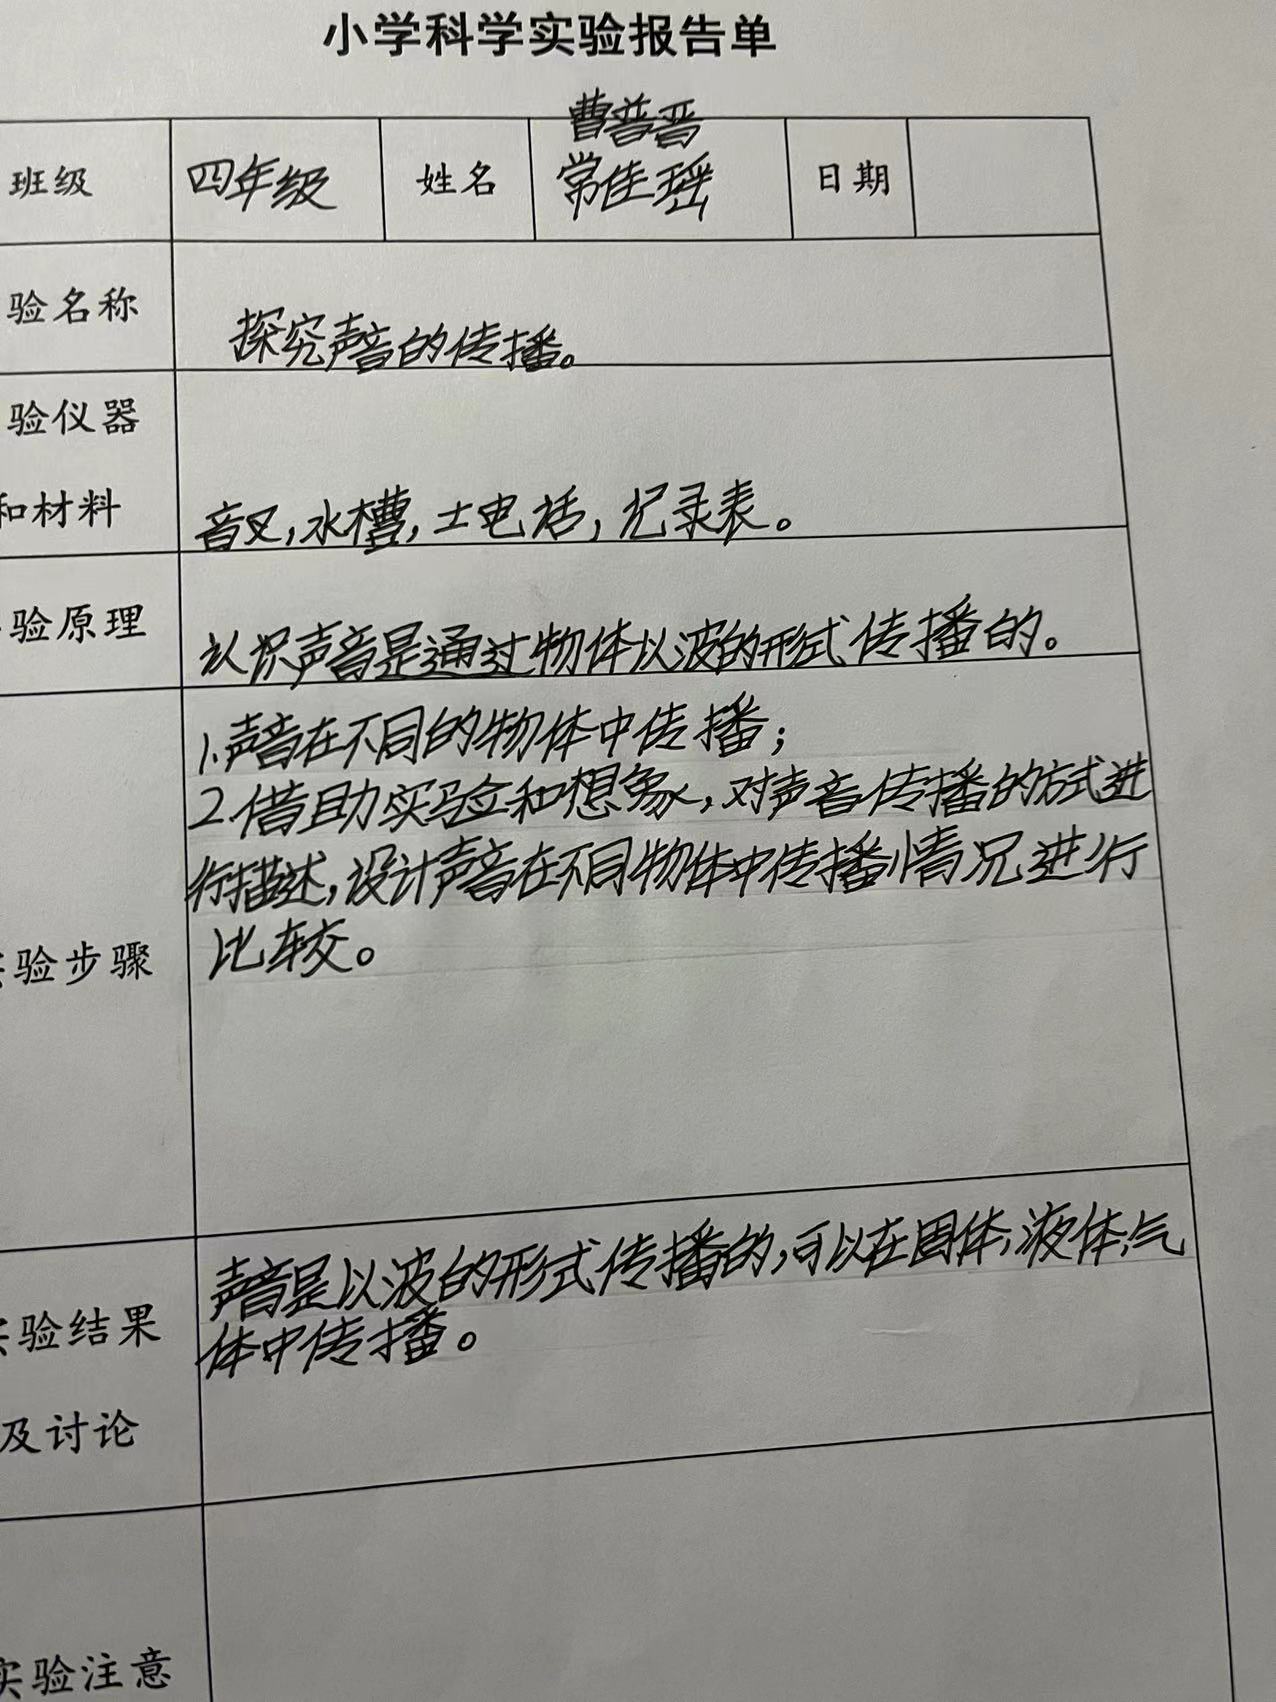 小学科学实验报告单
曹普晋
班级 四年级 姓名 常佳瑶 日期
验名称 探究声音的传播。
验仪器
和材料 音叉,水槽,土电话,记录表。
验原理 认识声音是通过物体以波的形式传播的。
1.声音在不同的物体中传播;
2.借助实验和想象,对声音传播的方式进
行描述,设计声音在不同物体中传播情况进行
比较。
实验步骤
声音是以波的形式传播的,可以在固体,液体,气
体中传播。
实验结果
及讨论
实验注意